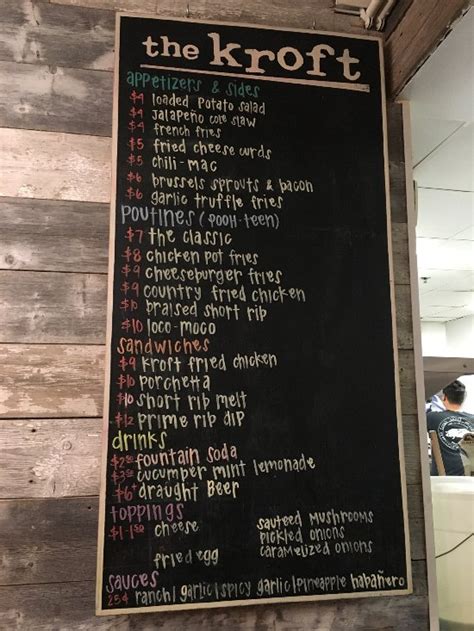 the kroft
appetizers & sides
$4 loaded potato salad
$4 jalapeño cole slaw
$4 french fries
$5 fried cheese curds
$5 chili-mac
$6 brussels sprouts & bacon
$6 garlic truffle fries
poutines (pooh-teen)
$7 the classic
$8 chicken pot fries
$9 cheeseburger fries
$9 country fried chicken
$10 braised short rip
$10 loco-moco
sandwiches
$9 kroft fried chicken
$10 porchetta
$10 short rib melt
$12 prime rib dip
drinks
fountain soda
cucumber mint lemonade
$6+ draught beer
toppings
cheese sauteed mushrooms
pickled onions
fried egg caramelized onions
sauces
25¢ ranch|garlic|spicy garlic|pineapple habañero